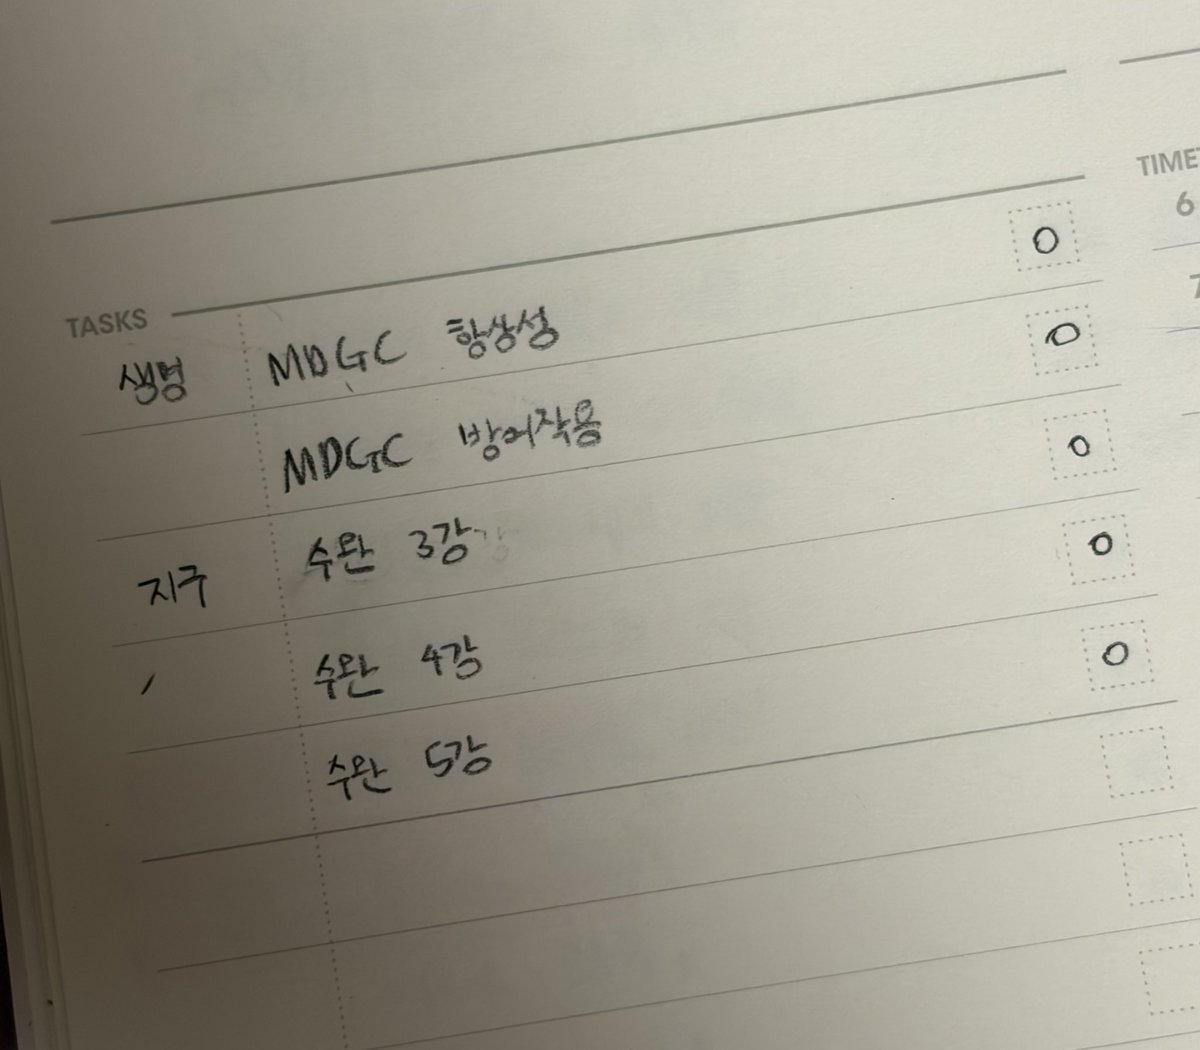 TIME
6
7
TASKS
생명 MDGC 항상성 O
MDGC 방어작용 O
지구 수완 3강 O
〃 수완 4강 O
수완 5강 O